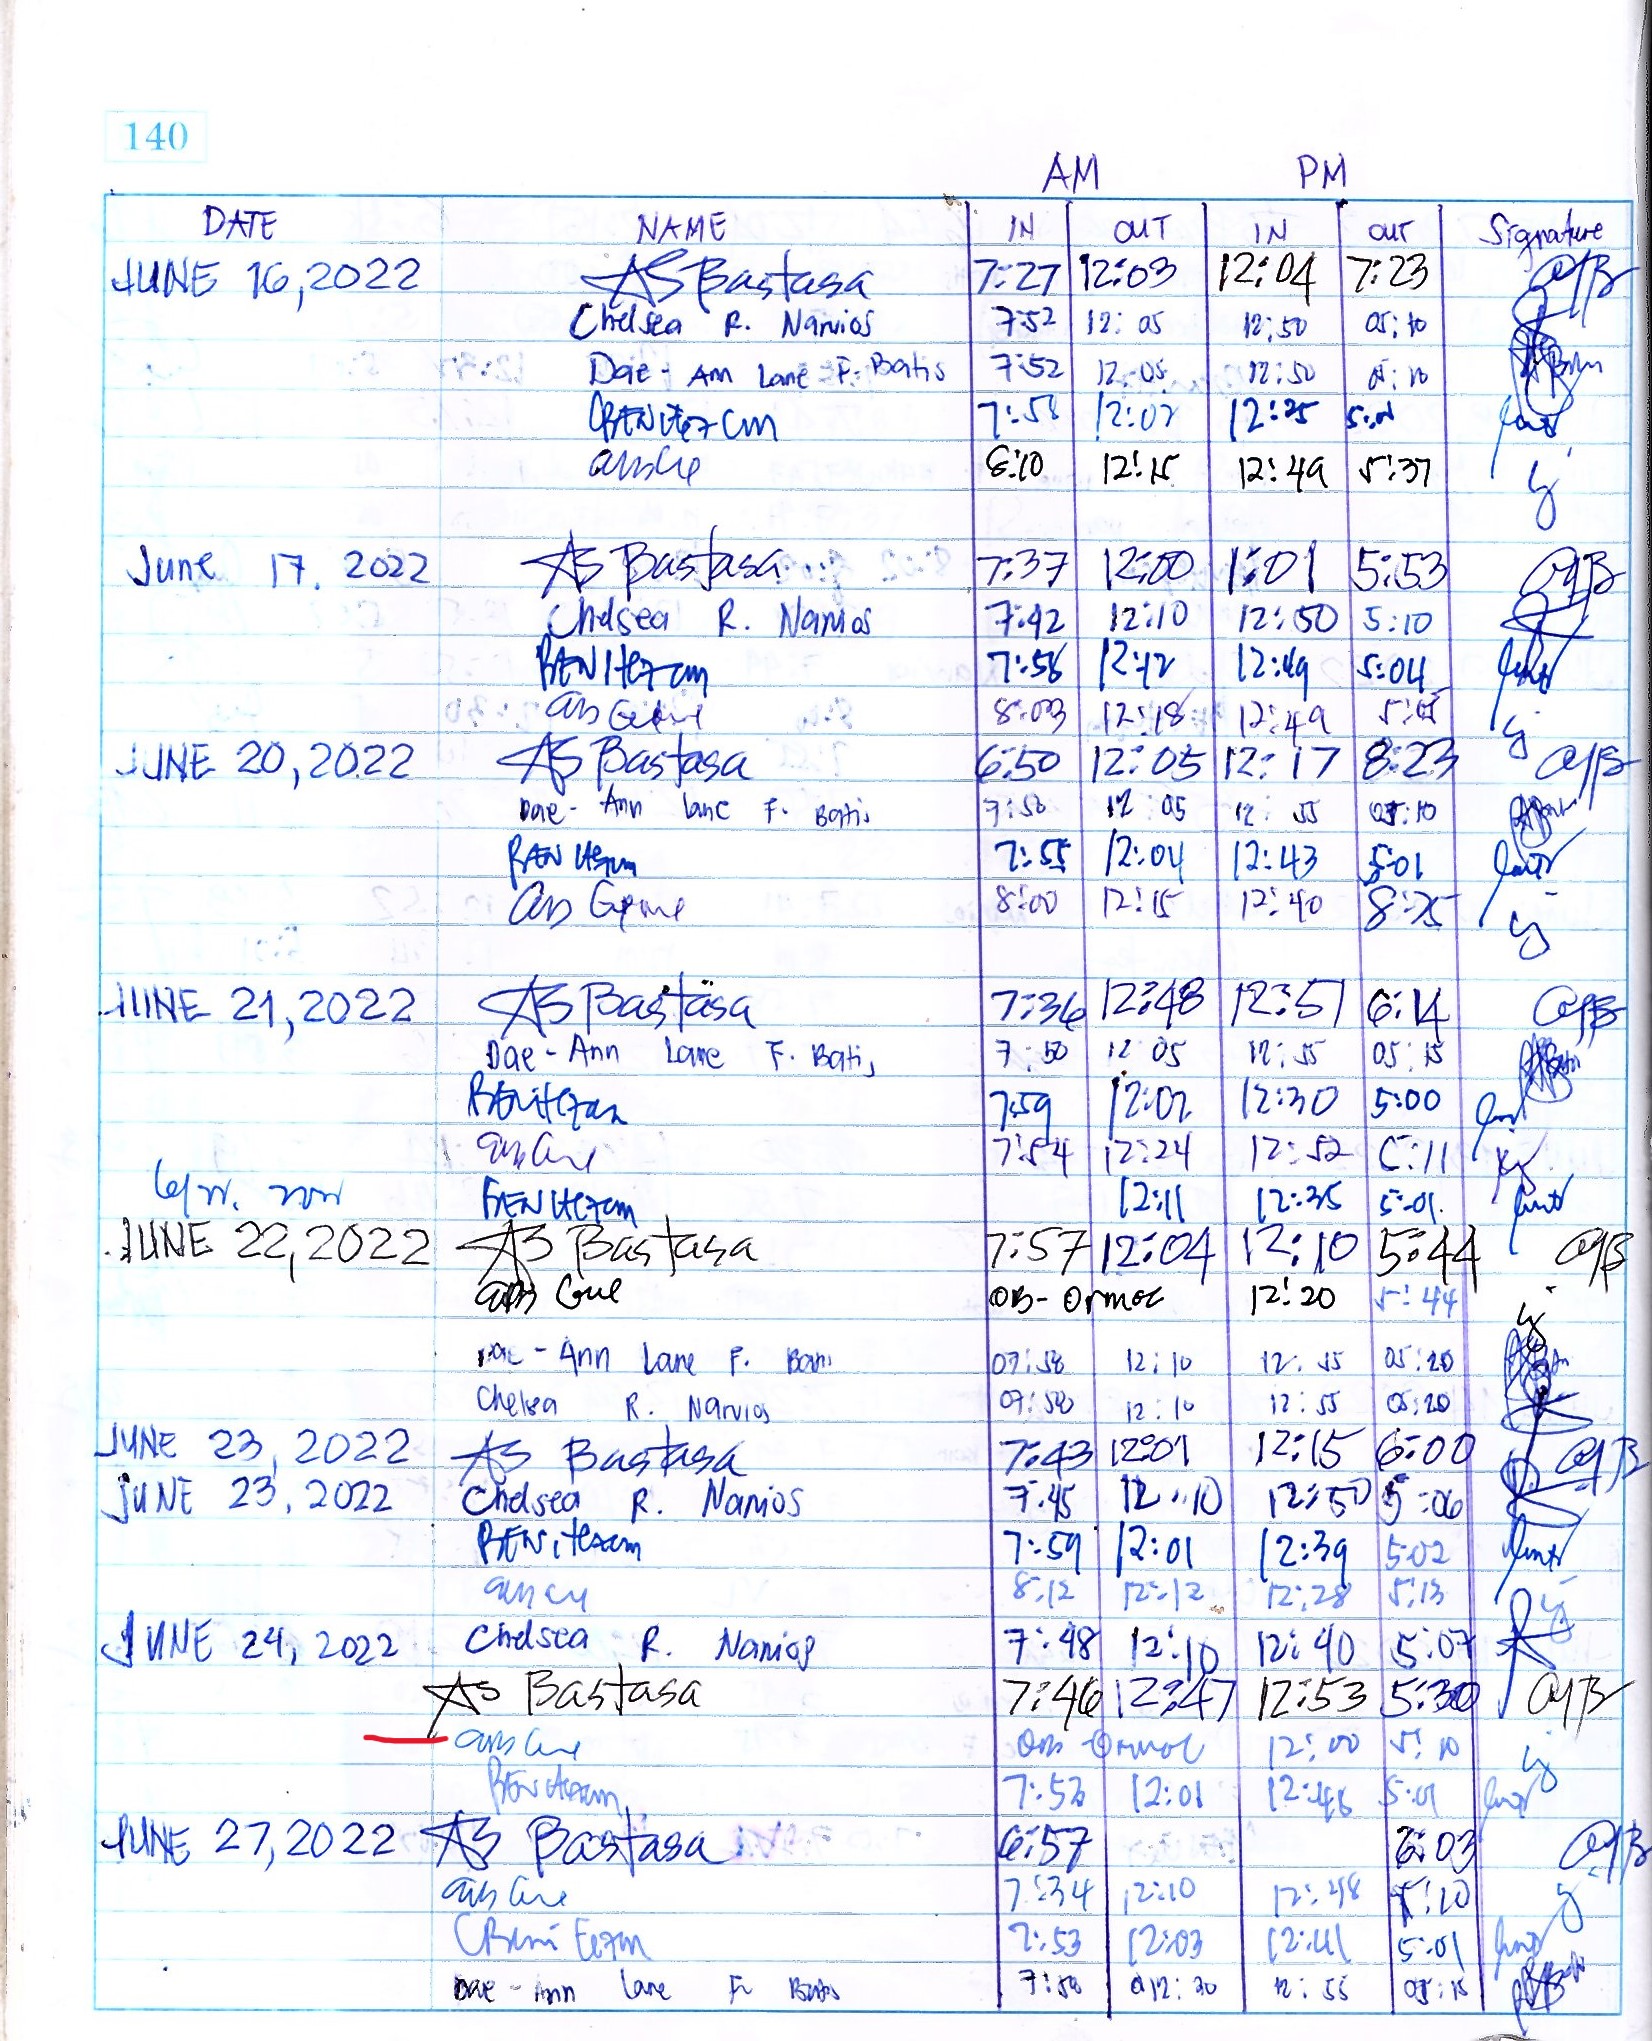 140
AM PM
DATE NAME IN OUT IN OUT Signature
JUNE 16,2022 AS Bastasa 7:27 12:03 12:04 7:23
Chelsea R. Narvios 7:52 12:05 12:50 05:10
Dae-Ann Lane F. Batis 7:52 12:05 12:50 05:10
12:25
8:10 12:15 12:49 5:37
June 17. 2022 AS Bastasa 7:37 12:00 1:01 5:53
Chelsea R. Narvios 7:42 12:10 12:50 5:10
7:58 12:12 12:49 5:04
8:03 12:18 12:49
JUNE 20,2022 AS Bastasa 6:50 12:05 12:17 8:23
Dae-Ann Lane F. Batis 7:50 12:05 12:55 05:10
7:55 12:04 12:43 5:01
8:00 12:15 12:40 8:25
JUNE 21,2022 AS Bastasa 7:36 12:48 12:51 6:14
Dae-Ann Lane F. Batis 7:50 12:05 12:55 05:15
7:59 12:02 12:30 5:00
7:54 12:24 12:52
12:11 12:35 5:01
JUNE 22,2022 AS Bastasa 7:57 12:04 12:10 5:44
OB-Ormoc 12:20 5:44
Dae-Ann Lane F. Batis 07:58 12:10 12:55 05:20
Chelsea R. Narvios 07:58 12:10 12:55 05:20
JUNE 23, 2022 AS Bastasa 7:43 12:01 12:15 6:00
JUNE 23, 2022 Chelsea R. Narvios 7:45 12:10 12:50 5:06
7:59 12:01 12:39 5:02
8:12 12:12 12:28 5:13
JUNE 24, 2022 Chelsea R. Narvios 7:48 12:10 12:40 5:07
AS Bastasa 7:46 12:47 12:53 5:30
Ormoc 12:00 5:10
7:53 12:01 12:46 5:01
JUNE 27,2022 AS Bastasa 6:57 6:03
7:34 12:10 12:48 5:10
7:53 12:03 12:41 5:01
Dae-Ann Lane F. Batis 7:50 12:20 12:55 05:15